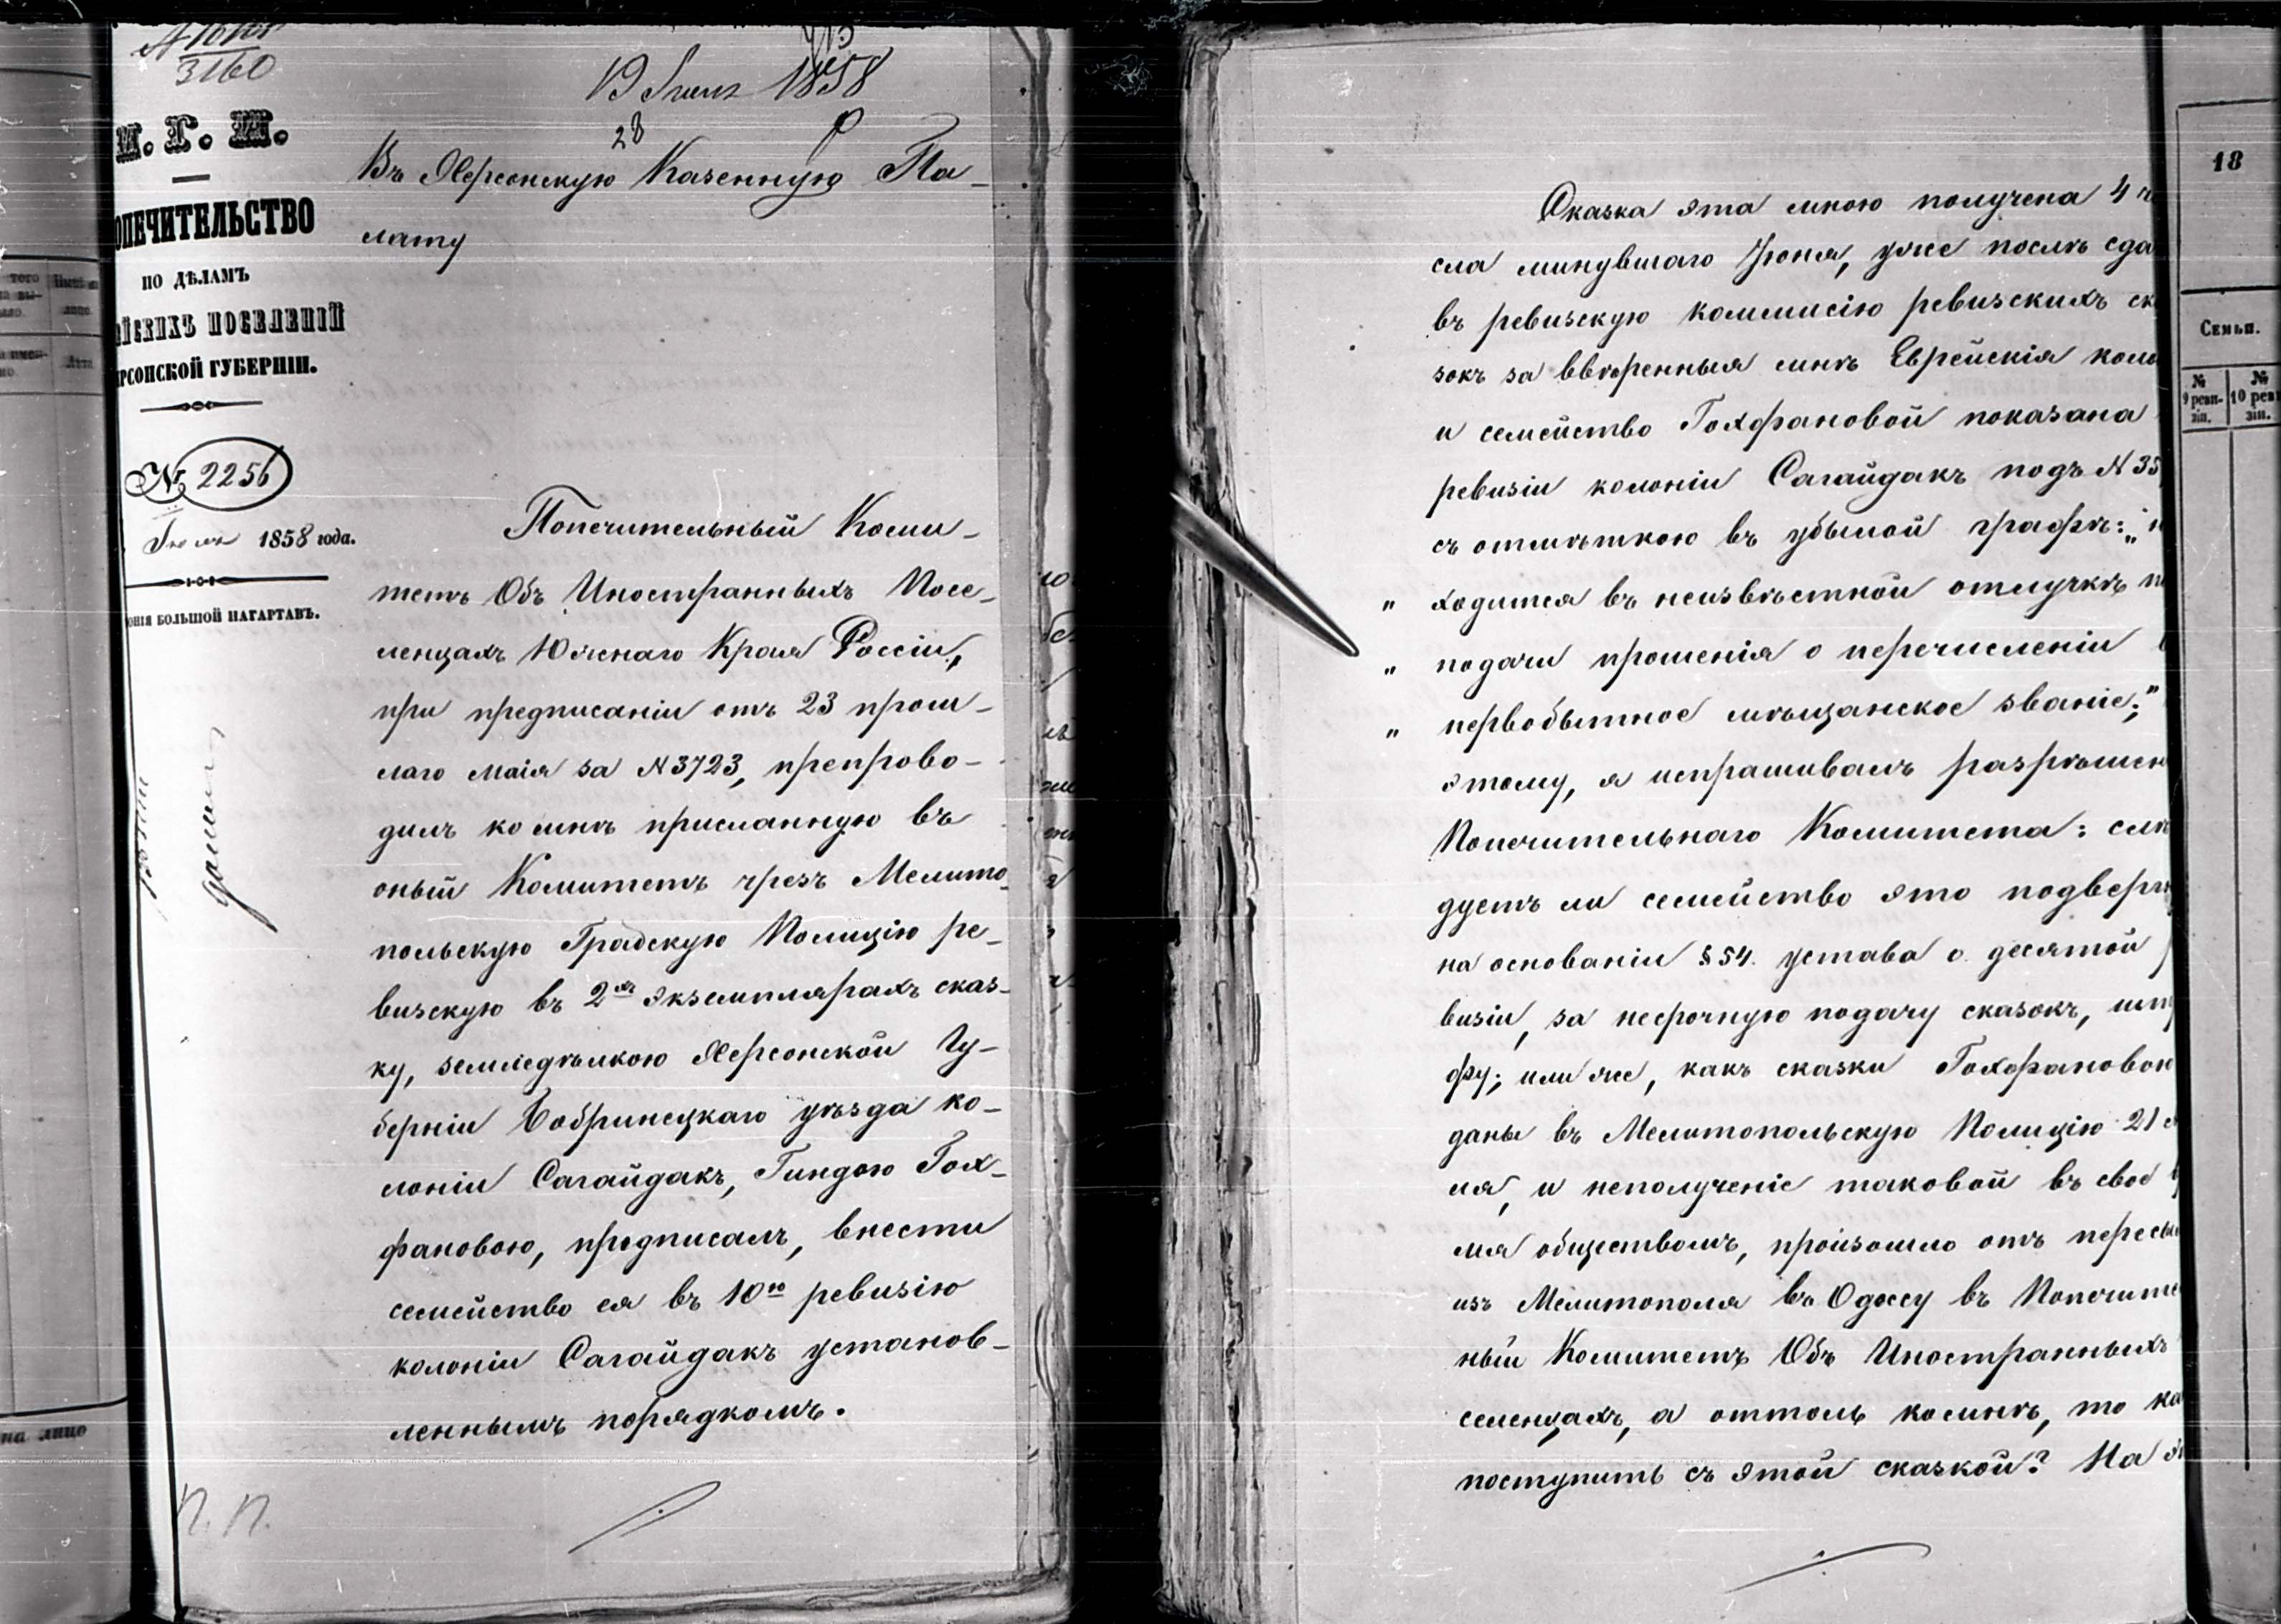 3160
19 Іюля 1858
28
М. Г. И.
ОПЕЧИТЕЛЬСТВО
ПО ДѢЛАМЪ
ЙСКИХЪ ПОСЕЛЕНІЙ
РСОНСКОЙ ГУБЕРНІИ.
№ 2256
Іюля 1858 года.
ОНІЯ БОЛЬШОЙ НАГАРТАВЪ.
Въ Херсонскую Казенную Па-
лату
Попечительный Коми-
тетъ Объ Иностранныхъ Посе-
ленцахъ Южнаго Края Россіи,
при предписаніи отъ 23 прош-
лаго Маія за № 3723, препрово-
дилъ ко мнѣ присланную въ
оный Комитетъ чрезъ Мелито-
польскую Градскую Полицію ре-
визскую въ 2хъ экземплярахъ сказ-
ку, земледѣлкою Херсонской Гу-
берніи Бобринецкаго уѣзда ко-
лоніи Сагайдакъ, Гиндою Гох-
фановою, предписалъ, внести
семейство ея въ 10ю ревизію
колоніи Сагайдакъ установ-
леннымъ порядкомъ.
П. П.
Сказка эта мною получена 4 чи
сла минувшаго Іюня, уже послѣ сда
въ ревизскую коммисію ревизскихъ ск
зокъ за ввѣренныя мнѣ Еврейскія коло
и семейство Гохфановой показана
ревизіи колоніи Сагайдакъ подъ № 35
съ отмѣткою въ убылой графѣ: „н
„ ходится въ неизвѣстной отлучкѣ п
„ подачи прошенія о перечисленіи в
„ первобытное мѣщанское званіе;"
этому, я испрашивалъ разрѣшен
Попечительнаго Комитета: слѣ
дуетъ ли семейство это подверг
на основаніи § 54. устава о десятой р
визіи, за несрочную подачу сказокъ, шт
фу; или же, какъ сказки Гохфановою
даны въ Мелитопольскую Полицію 21 а
ля, и неполученіе таковой въ свое в
мя обществомъ, произошло отъ пересы
изъ Мелитополя въ Одессу въ Попечите
ный Комитетъ Объ Иностранныхъ
селенцахъ, а оттоль ко мнѣ, то ка
поступить съ этой сказкой? На э
18
Семьи.
№ 9 реви-
зіи.
№ 10 реви
зіи.
на лицо